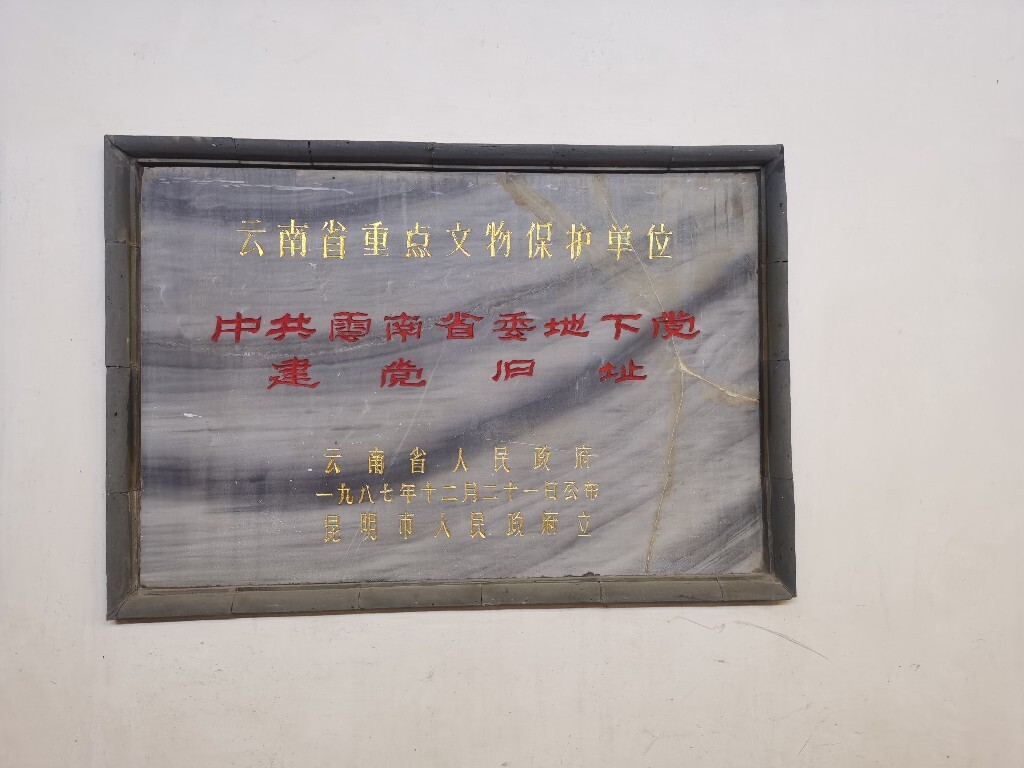 云南省重点文物保护单位
中共雲南省委地下党
建党旧址
云南省人民政府
一九八七年十二月二十一日公布
昆明市人民政府立